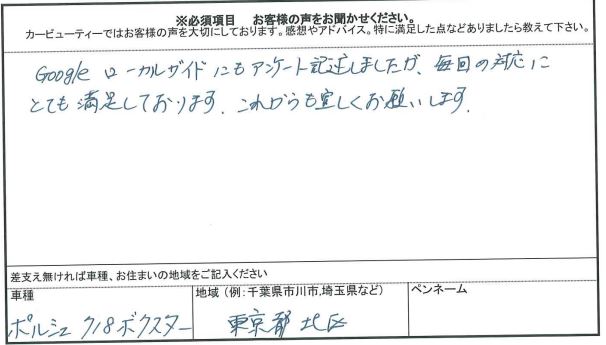 ※必須項目 お客様の声をお聞かせください。
カービューティーではお客様の声を大切にしております。感想やアドバイス。特に満足した点などありましたら教えて下さい。
Google ローカルガイドにもアンケート記述しましたが、毎回の対応に
とても満足しております。これからも宜しくお願いします。
差支え無ければ車種、お住まいの地域をご記入ください
車種
地域（例:千葉県市川市,埼玉県など）
ペンネーム
ポルシェ 718ボクスター
東京都 北区